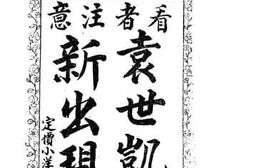 看者注意
袁世凱
新出現
定價小洋